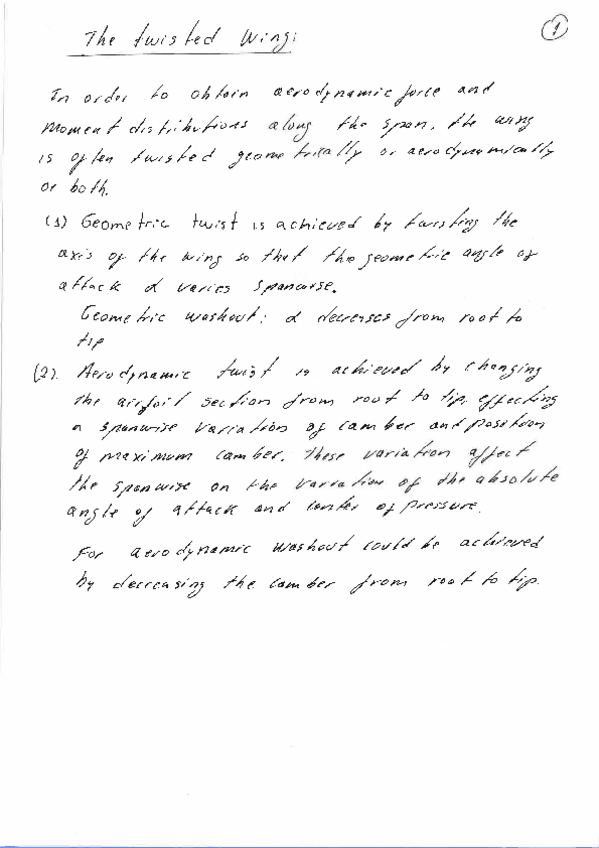 1
The twisted Wing:
In order to obtain aerodynamic force and
moment distributions along the span, the wing
is often twisted geometrically or aerodynamically
or both.
(1) Geometric twist is achieved by twisting the
axis of the wing so that the geometric angle of
attack α varies spanwise.
Geometric washout: α decreases from root to
tip
(2). Aerodynamic twist is achieved by changing
the airfoil section from root to tip, effecting
a spanwise variation of camber and position
of maximum camber. These variation affect
the spanwise on the variation of the absolute
angle of attack and center of pressure.
For aerodynamic washout could be achieved
by decreasing the camber from root to tip.